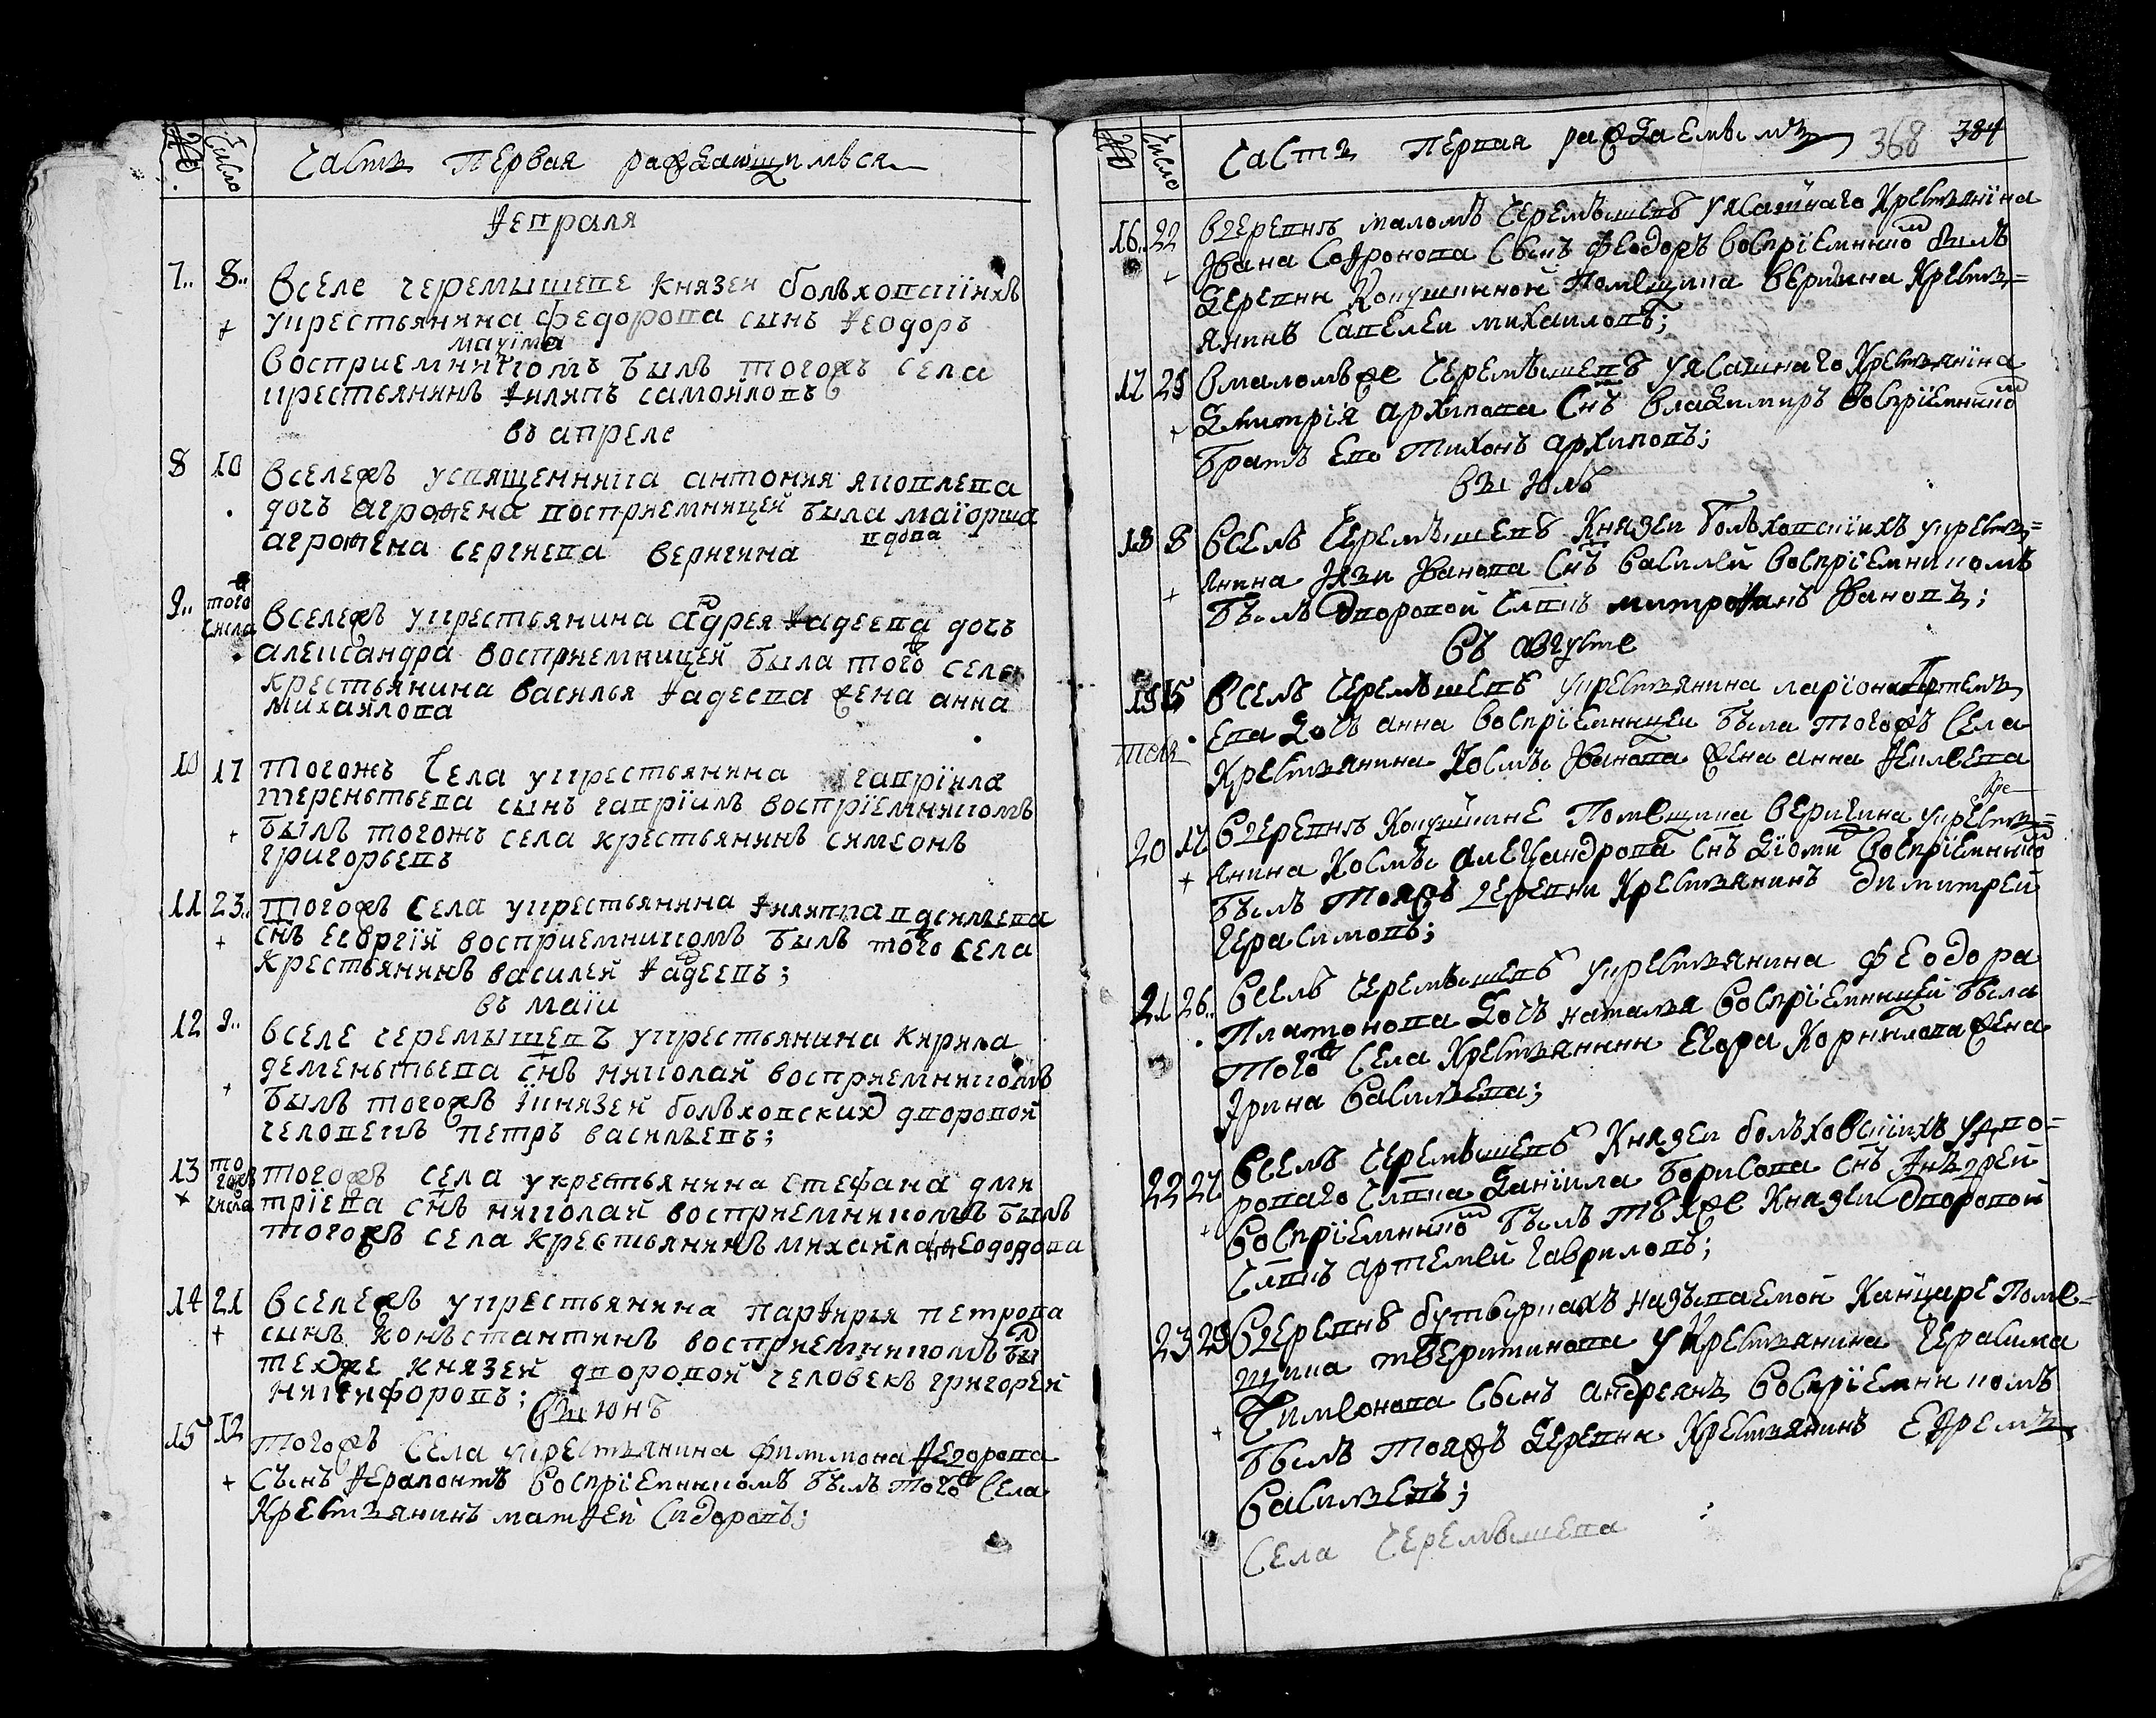 № Число Часть первая раждающимъся
февраля
7.. 8.. Вселе черемышеве князеи болъховскiихъ
укрестьянина федорова сынъ феодоръ
маѯима
восприемникомъ былъ тогожъ села
крестьянинъ филипъ самойловъ
въ апреле
8 10 Всележъ усвященника антония яковлева
дочъ агрофена восприемницей была маiорша
вдова
агрофена сергиева веригина
9.. того ж числа Всележъ укрестьянина андрея фадеева дочъ
александра восприемницей была того ж села
крестьянина василья фадеева жена анна
михайлова
10 17 Тогожъ села укрестьянина гаврiила
терентьева сынъ гаврiилъ восприемникомъ
былъ тогожъ села крестьянинъ симеонъ
григорьевъ
11 23.. Тогожъ села укрестьянина филиппа васильева
снъ георгiй восприемникомъ былъ того ж села
крестьянинъ василей фадеевъ;
въ маiи
12 9.. Вселе черемышевъ укрестьянина кирила
дементьева снъ николай восприемникомъ
былъ тогожъ князей болъховских дворовой
человекъ петръ васильевъ;
13 тогожъ числа тогожъ села укрестьянина стефана дми
трiева снъ николай восприемникомъ былъ
тогожъ села крестьянинъ михайла феодорова
14 21 Всележъ укрестьянина парфирья петрова
сынъ конъстантинъ восприемникомъ бы л
техже князей дворовой человекъ григорей
никифоровъ;
въ июнѣ
15 12 тогожъ села укрестьянина филимона федорова
сынъ ферапонтъ восприемникомъ былъ того ж села
крестьянинъ матфей сидоровъ;
№ Число Часть первая раждаемымъ 368 384
16.. 22 Вдеревнѣ маломъ черемышевѣ уясашнаго крестьянiна
Ивана софронова сынъ феодоръ воспрiемником былъ
деревни кокушкиной помещика веригина кресть=
янинъ савелеи михаиловъ;
17 25 Вмаломъже черемышевѣ уясашнаго крестьянина
дмитрiя архипова снъ владимиръ воспрiемником
братъ ево тихонъ архиповъ;
въ июлѣ
18 8 Вселѣ черемышевѣ князеи болъховскiихъ укресть=
янина Иванова снъ василей воспрiемникомъ
былъ дворовой члвкъ митрофанъ Ивановъ;
Въ августе
19 15 Вселѣ черемышевѣ укрестьянина ларiона артемь
ева дочъ анна воспрiемницеи была тогожъ села
крестьянина космы Иванова жена анна
20 17 Вдеревнѣ кокушкине помещика веригина укресть=
янина космы александрова снъ воспрiемником
былъ тояжъ деревни крестьянинъ димитрей
герасимовъ;
21 26.. Вселѣ черемышевѣ укрестьянина феодора
платонова дочъ наталья воспрiемницей была
того ж села крестьянини егора корнилова жена
Ирина васильева;
22 27 Вселѣ черемышевѣ князеи болъховскiихъ удво=
роваго члвка данiила борисова снъ андрей
воспрiемником былъ тѣхже князеи дворовой
члвкъ артемей гавриловъ;
23 29 Вдеревнѣ бутыркахъ называемой канцаре поме=
щика тверитинова укрестьянина герасима
симеонова сынъ андреянъ воспрiемникомъ
былъ тояжъ деревни крестьянинъ ефремъ
васильевъ;
села черемышева